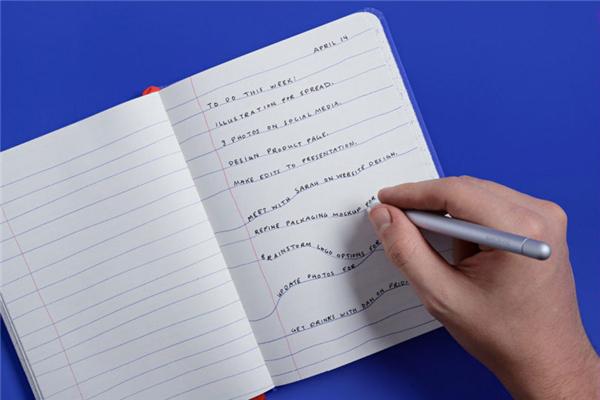 APRIL 14
TO DO THIS WEEK:
ILLUSTRATION FOR SPREAD.
9 PHOTOS ON SOCIAL MEDIA.
DESIGN PRODUCT PAGE.
MAKE EDITS TO PRESENTATION.
MEET WITH SARAH ON WEBSITE DESIGN.
REFINE PACKAGING MOCKUP FOR
BRAINSTORM LOGO OPTIONS FOR
UPDATE PHOTOS FOR
GET DRINKS WITH DAN ON